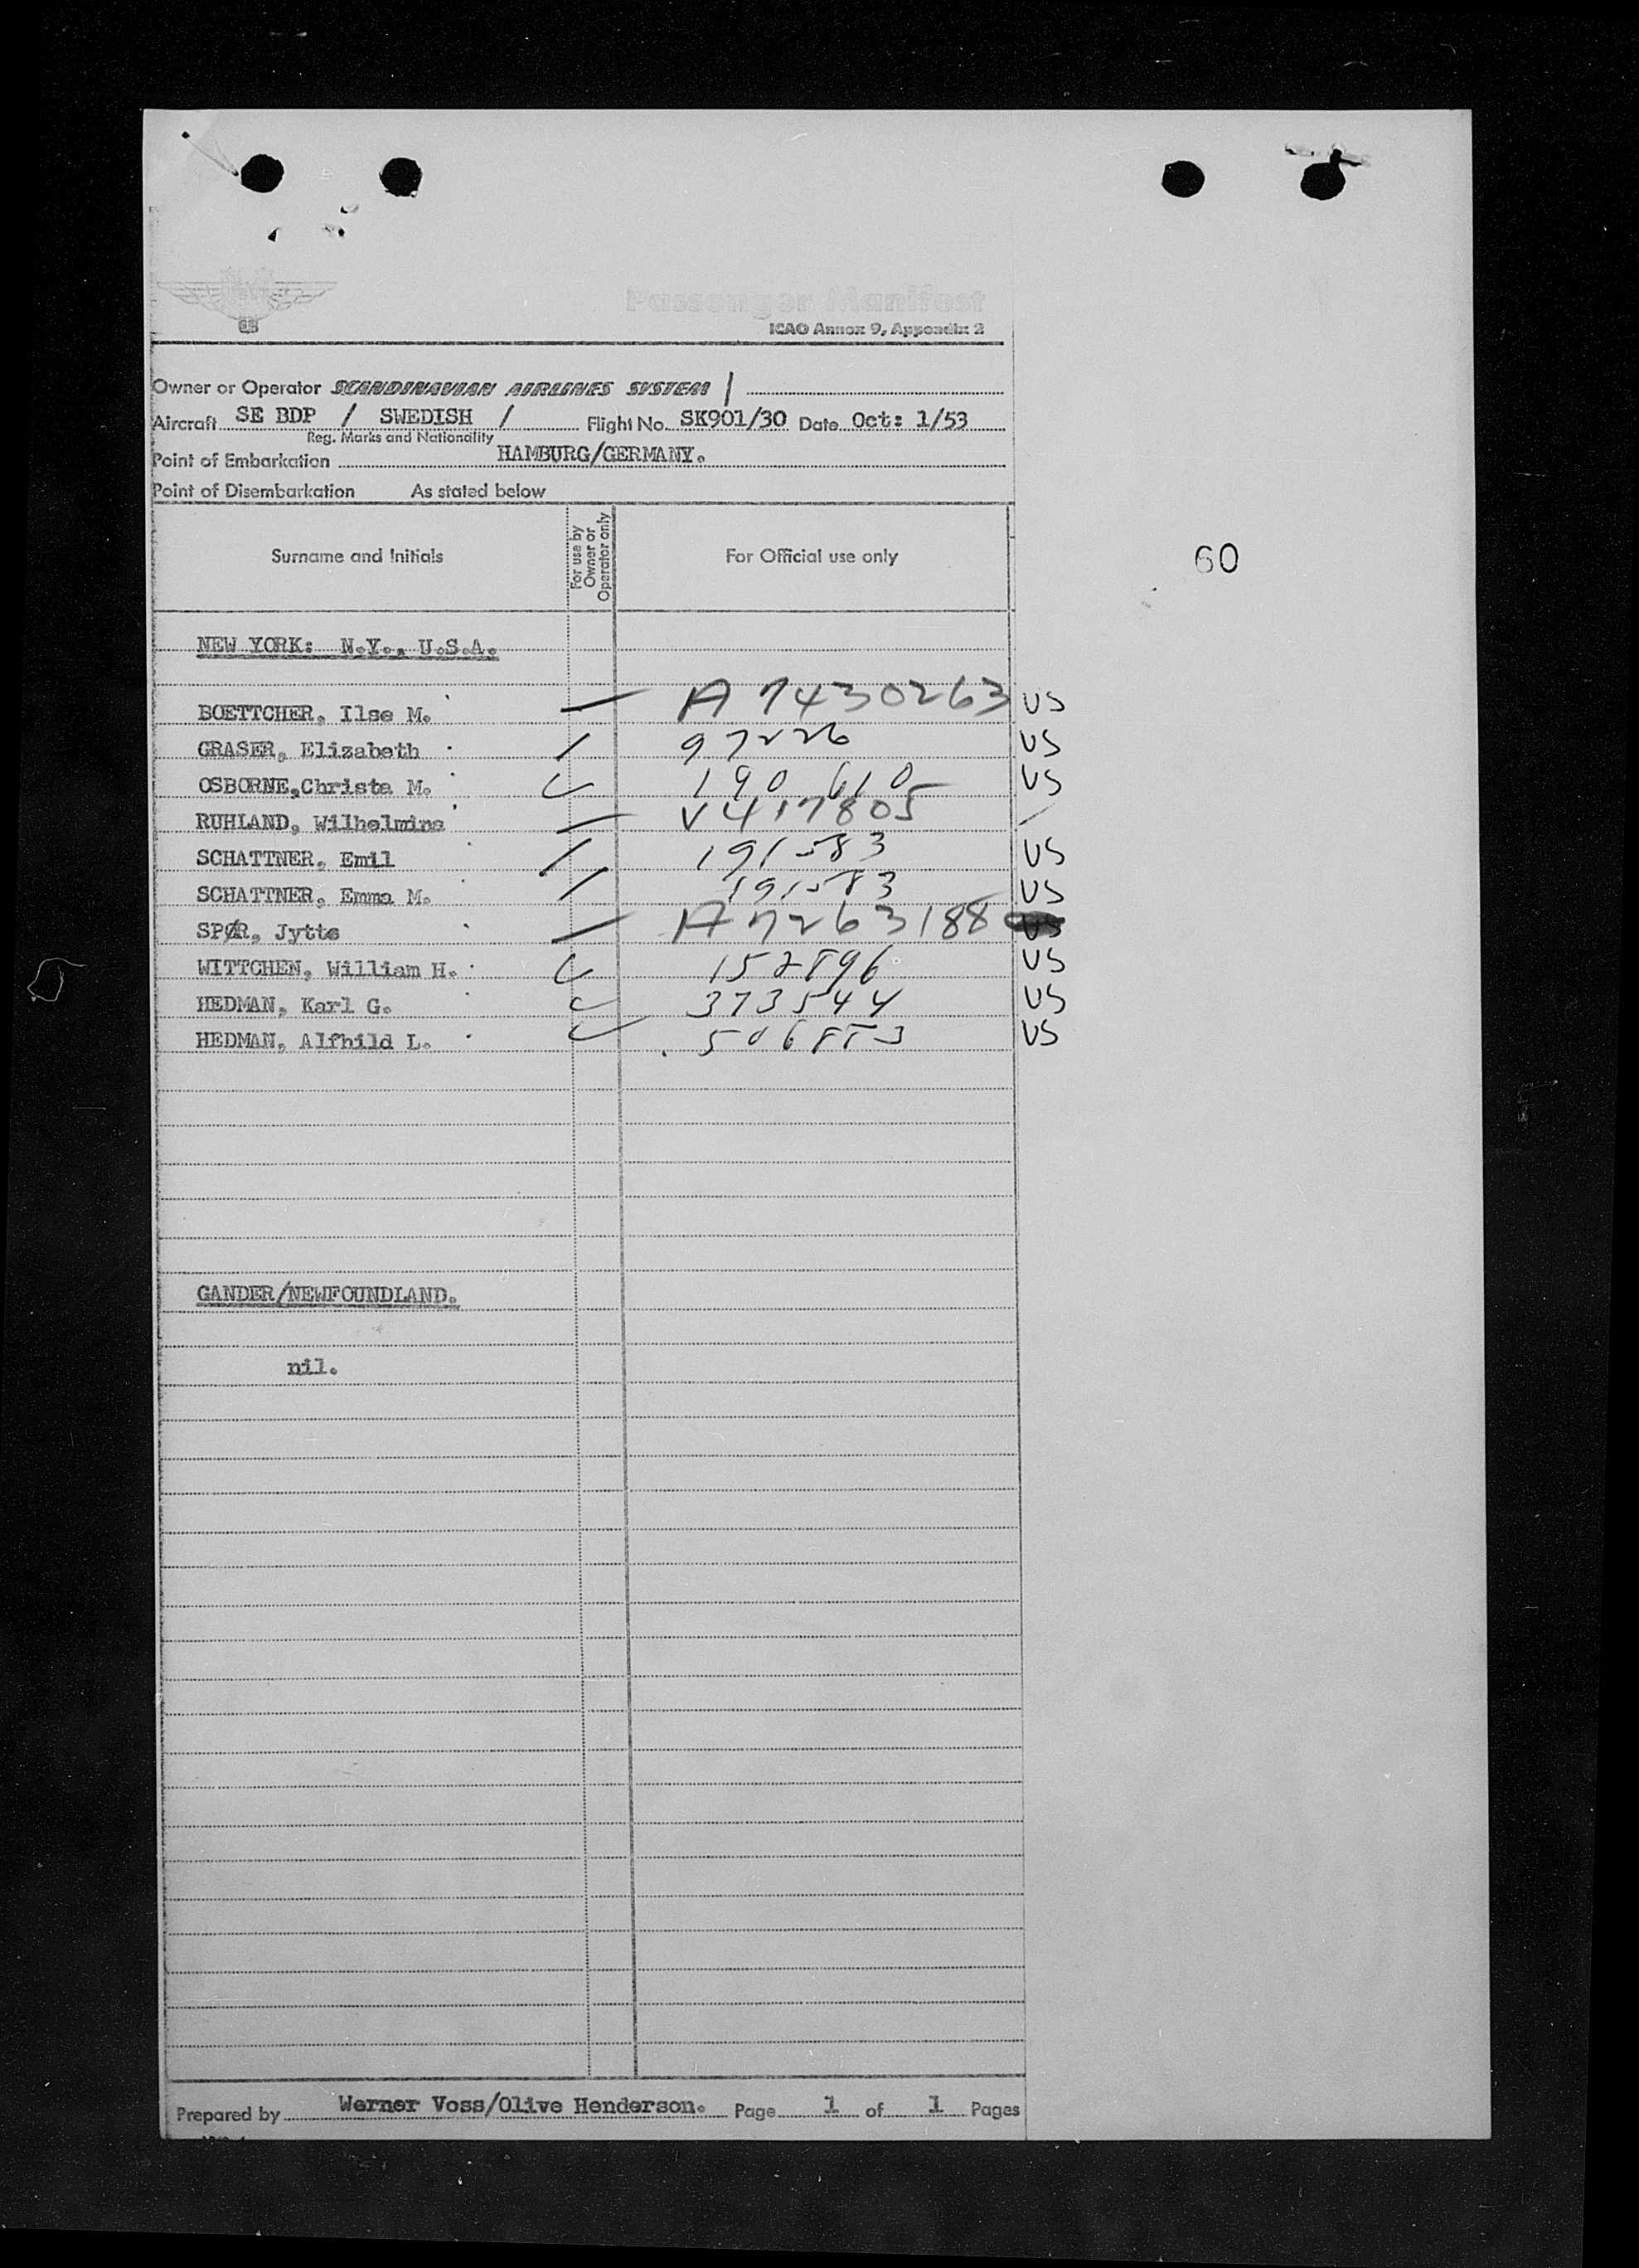 Passenger Manifest
ICAO Annex 9, Appendix 2
Owner or Operator SCANDINAVIAN AIRLINES SYSTEM /
Aircraft SE BDP / SWEDISH / Flight No. SK901/30 Date Oct: 1/53
Reg. Marks and Nationality
Point of Embarkation HAMBURG/GERMANY.
Point of Disembarkation As stated below
Surname and Initials For use by Owner or Operator only For Official use only
60
NEW YORK: N.Y., U.S.A.
BOETTCHER, Ilse M. A7430263 US
GRASER, Elizabeth 97226 US
OSBORNE,Christa M. 190610 US
RUHLAND, Wilhelmina V417805
SCHATTNER, Emil 191583 US
SCHATTNER, Emma M. 191583 US
SPØR, Jytte A7263188
WITTCHEN, William H. 152896 US
HEDMAN, Karl G. 373544 US
HEDMAN, Alfhild L. 506883 US
GANDER/NEWFOUNDLAND.
nil.
Prepared by Werner Voss/Olive Henderson. Page 1 of 1 Pages